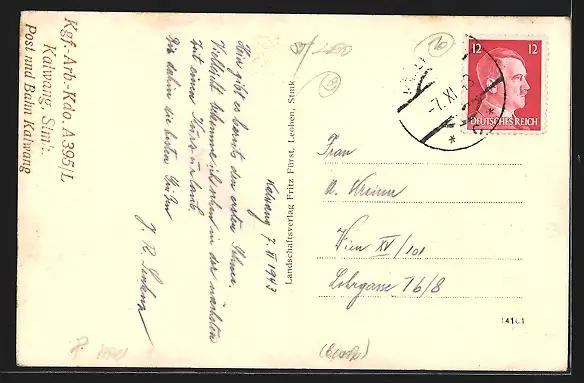 Kgf.-Arb.-Kdo. A 395/L
Kalwang Stmk.
Post und Bahn Kalwang
Kalwang 7. XI 1943
Hier gibt es bereits den ersten Schnee,
Vielleicht bekomme ich schon in der nächsten
Zeit einen Kurzurlaub.
Bis dahin die besten Grüße
Landschaftsverlag Fritz Fürst, Leoben, Stmk.
12 12
DEUTSCHES REICH
-7.XI.43
Frau
Wien XV/101
76/8
14161